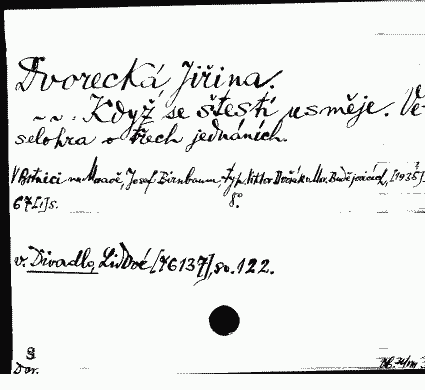 Dvorecká, Jiřina.
~ ~. Když se štěstí usměje. Ve-
selohra o třech jednáních.
V Brtnici na Moravě, Josef Birnbaum, typ. Viktor Dvořák v Mor. Budějovicích, [1935?].
67[1] s. 8°.
v. Divadlo Lidové [76137], sv. 122.
8
Dor.